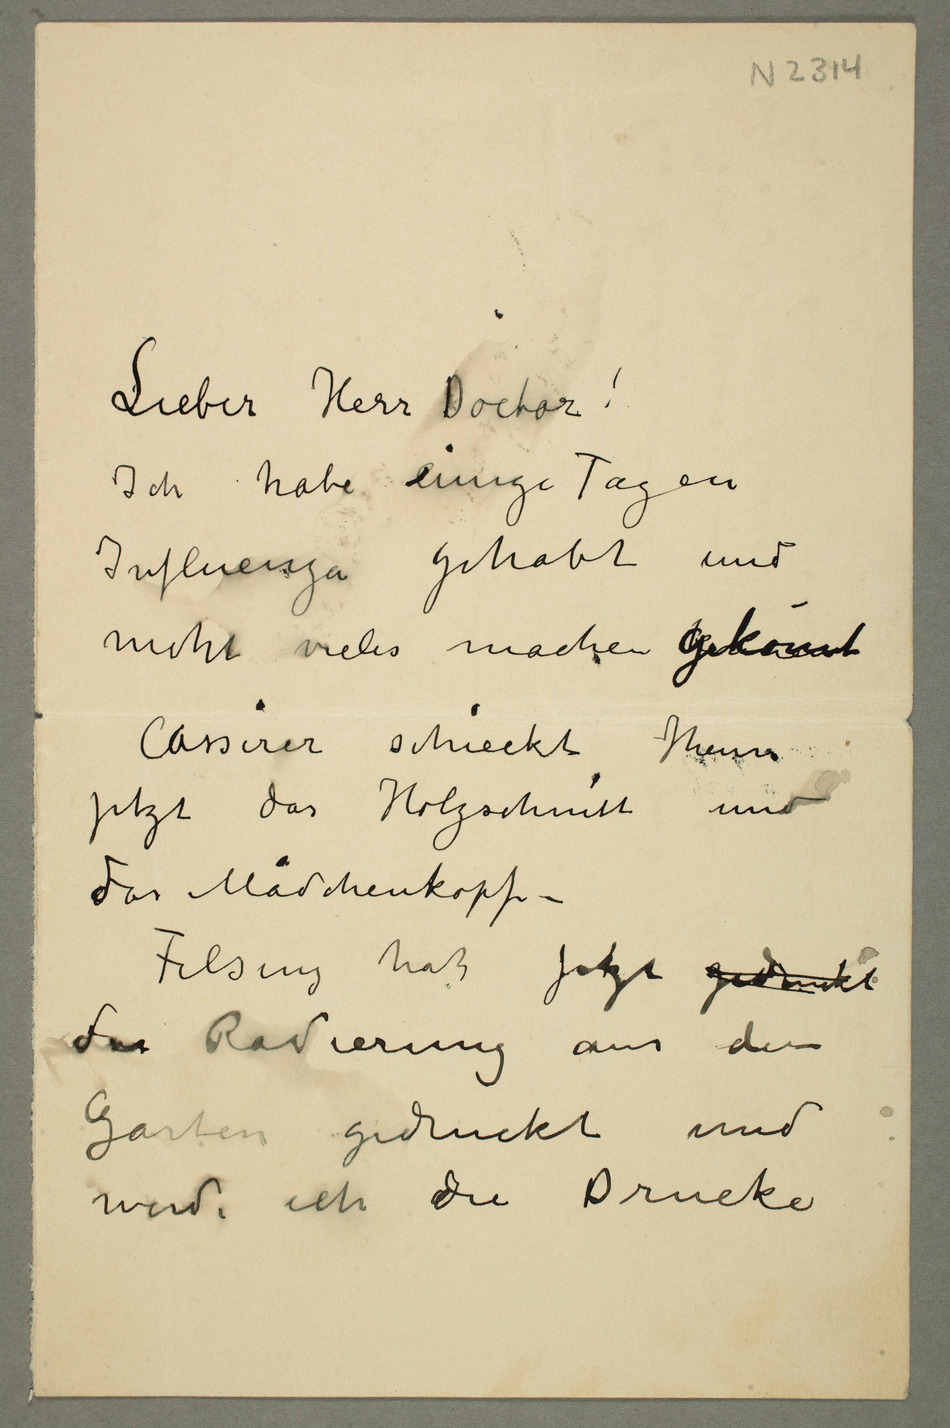 N 2314
Lieber Herr Doctor!
Ich habe einige Tagen
Influenza gehabt und
nicht vieles machen gekonnt
Cassirer schieckt Ihnen
jetzt das Holzschnitt und
das Mädchenkopf –
Felsing hat jetzt gedruckt
die Radierung aus den
Garten gedruckt und
werde ich die Drucke